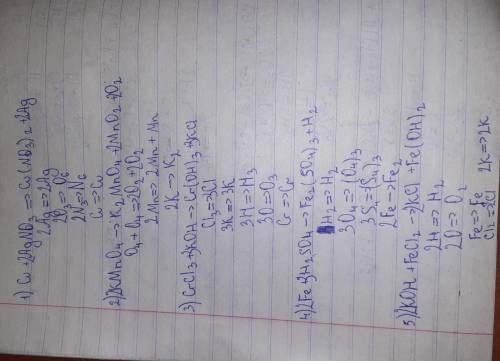 1) Cu + 2AgNO3 => Cu(NO3)2 + 2Ag
2Ag => 2Ag
2O3 => O6
2N => N6
Cu => Cu
2) 2KMnO4 -> K2MnO4 + 2MnO2 + 2O2
O4 + O4 => 2O4 + 2O2
2Mn => 2Mn + Mn
2K -> K2
3) CrCl3 + 3KOH -> Cr(OH)3 + 3KCl
Cl3 => 3Cl
3K => 3K
3H => H3
3O => O3
Cr => Cr
4) 2Fe + 3H2SO4 -> Fe2(SO4)3 + H2
H2 => H2
3O4 => (O4)3
3S => (S4)3
2Fe => Fe2
5) 2KOH + FeCl2 -> 2KCl + Fe(OH)2
2H => H2
2O => O2
Fe => Fe
Cl2 => 2Cl 2K => 2K